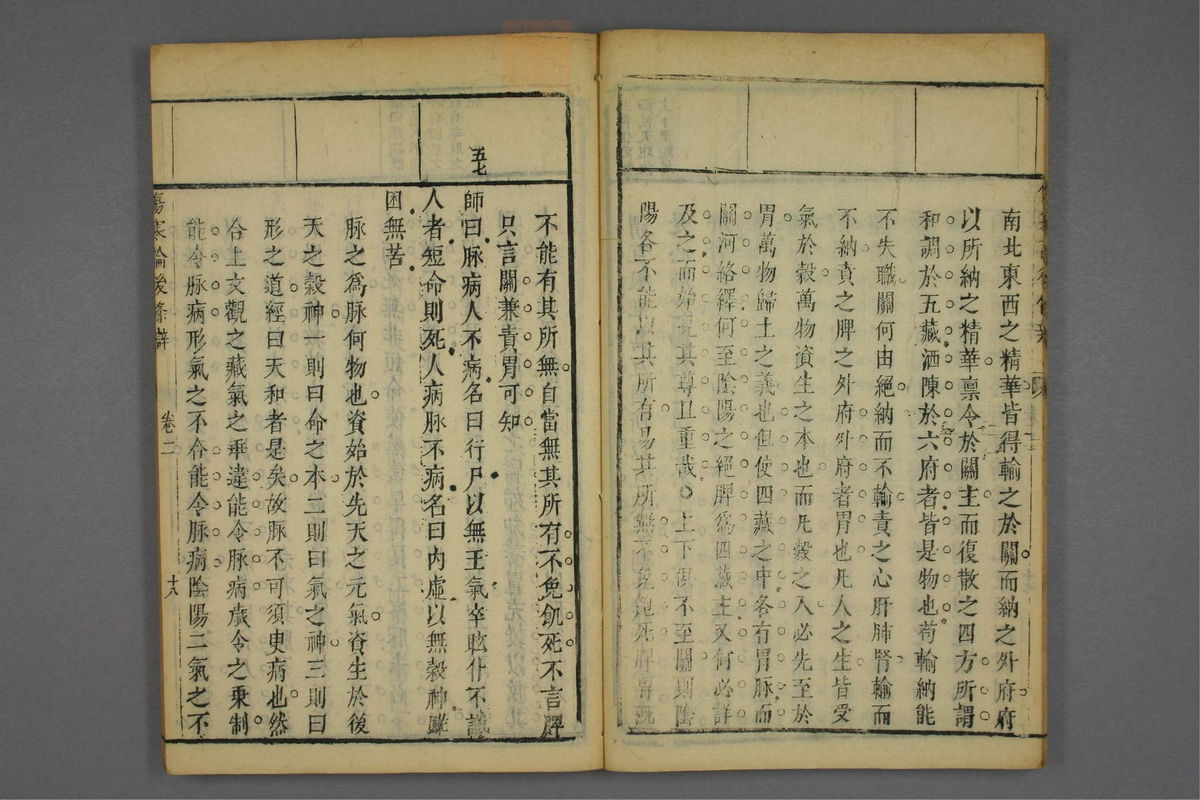 南北東西之精華皆得輸之於關而納之外府府
以所納之精華禀令於關主而復散之四方所謂
和調於五藏洒陳於六府者皆是物也苟輸納能
不失職關何由絕納而不輸責之心肝肺腎輸而
不納責之脾之外府外府者胃也凡人之生皆受
氣於穀萬物資生之本也而凡穀之入必先至於
胃萬物歸土之義也但使四藏之中各有胃脉而
關河絡繹何至陰陽之絕脾爲四藏主又何必詳
及之而始見其尊且重哉○上下俱不至關則陰
陽各不能以其所有易其所無不免絕死脾得旣
不能有其所無自當無其所有不免飢死不言脾
只言關兼責胃可知
五七
師曰脉病人不病名曰行尸以無王氣卒眩仆不識
人者短命則死人病脉不病名曰內虛以無穀神雖
困無苦
脉之爲脉何物也資始於先天之元氣資生於後
天之穀神一則曰命之本二則曰氣之神三則曰
形之道經曰天和者是矣故脉不可須臾病也然
合上文觀之藏氣之乖違能令脉病歲令之乘制
能令脉病形氣之不合能令脉病陰陽二氣之不
傷寒論後條辨
卷二
十八